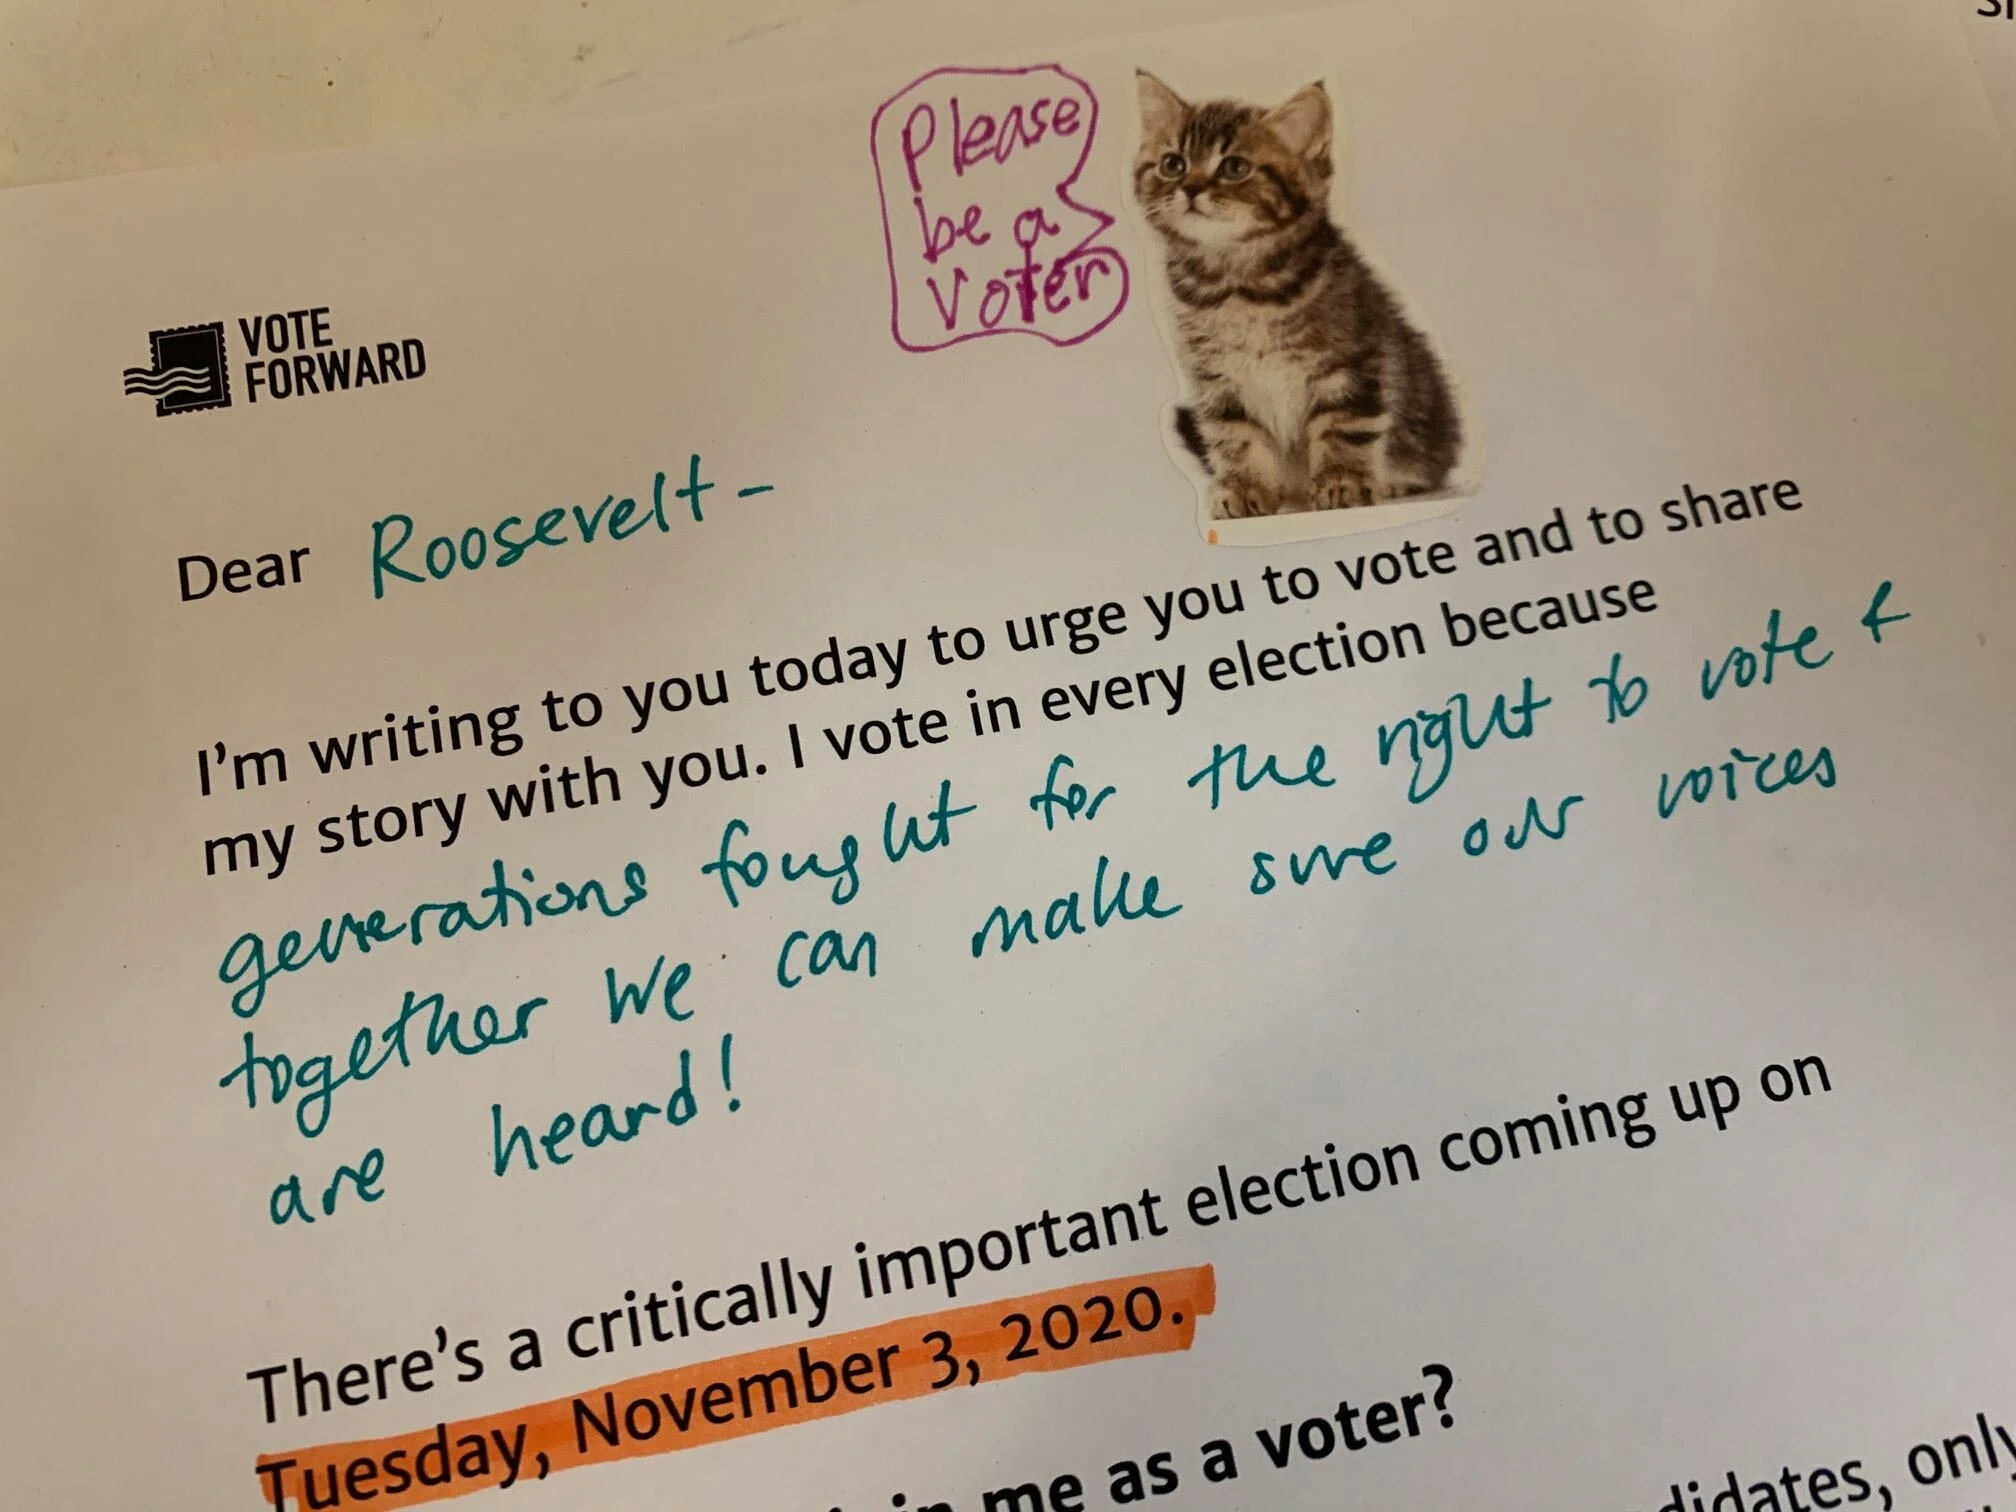 Please
be a
Voter
VOTE
FORWARD
Dear Roosevelt -
I'm writing to you today to urge you to vote and to share
my story with you. I vote in every election because
generations fought for the right to vote &
together we can make sure our voices
are heard!
There's a critically important election coming up on
Tuesday, November 3, 2020.
me as a voter?
only